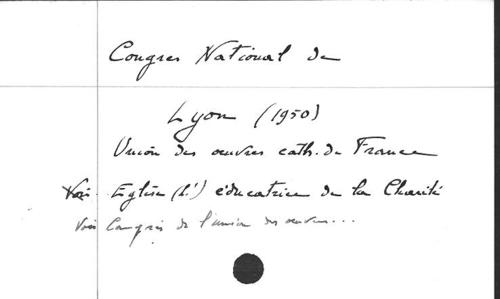 Congres National de
Lyon (1950)
Union des œuvres cath. de France
Voir Eglise (L') éducatrice de la Charité
Voir Congrès de l'union des œuvres...